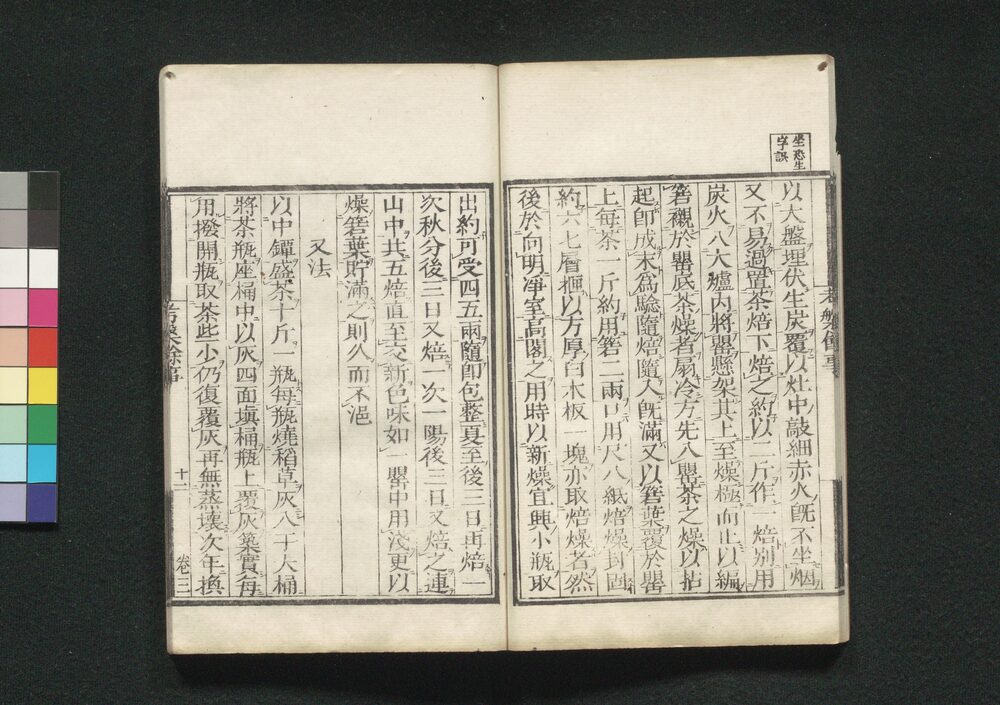 坐恐生
字誤
以大盤埋伏生炭覆以灶中敲細赤火旣不坐烟
又不易過置茶焙下焙之約以二斤作一焙別用
炭火入大爐內將罌懸架其上至燥極而止以編
箬襯於罌底茶燥者扇冷方先入罌茶之燥以拈
起卽成末爲驗隨焙隨入旣滿又以箬葉覆於罌
上每茶一斤約用箬二兩口用尺八紙焙燥封固
約六七層押以方厚白木板一塊亦取焙燥者然
後於向明凈室高閣之用時以新燥宜興小瓶取
考槃餘事
出約可受四五兩隨卽包整夏至後三日再焙一
次秋分後三日又焙一次一陽後三日又焙之連
山中共五焙直至交新色味如一罌中用淺更以
燥箬葉貯滿之則久而不浥
又法
以中罈盛茶十斤一瓶每瓶燒稻草灰入于大桶
將茶瓶座桶中以灰四面塡桶瓶上覆灰築實每
用撥開瓶取茶些少仍復覆灰再無蒸壞次年換
考槃餘事
十二
卷三